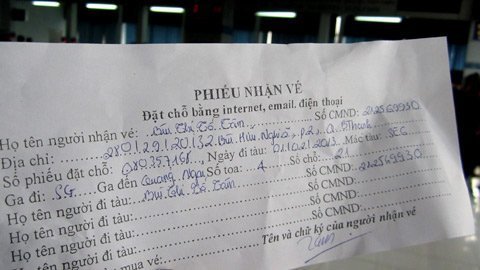 PHIẾU NHẬN VÉ
Đặt chỗ bằng internet, email. điện thoại
Họ tên người nhận vé: Bùi Thị Tố Tâm Số CMND: 212569930
Địa chỉ: Bùi Hữu Nghĩa, P2, Q. B Thạnh
Số phiếu đặt chỗ: Ngày đi tàu: Mác tàu: SE6
Ga đi: SG Ga đến Quảng Ngãi Số toa: 4 Số chỗ: 21
Họ tên người đi tàu: Bùi Thị Tố Tâm Số CMND: 212569930
Họ tên người đi tàu: Số CMND:
Họ tên người đi tàu: Số CMND:
Họ tên người đi tàu: Số CMND:
mua vé: Tên và chữ ký của người nhận vé